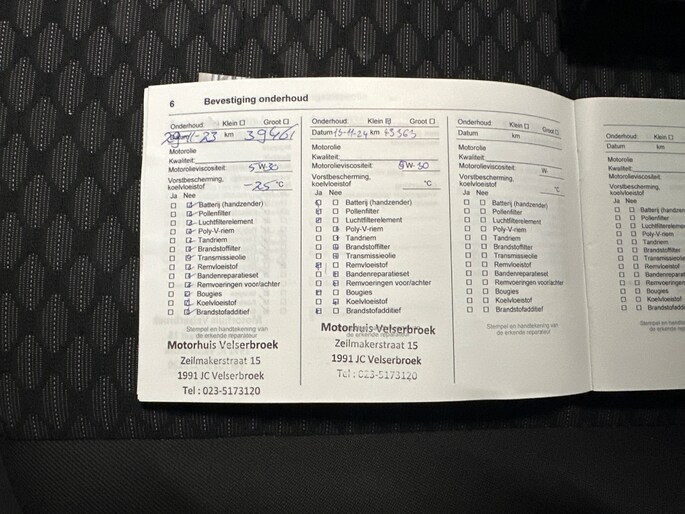 6 Bevestiging onderhoud
Onderhoud: Klein ☐ Groot ☐
29-11-23 km 39461
Motorolie
Kwaliteit:
Motorolieviscositeit: 5W-30
Vorstbescherming,
koelvloeistof -25 °C
Ja Nee
Batterij (handzender)
Pollenfilter
Luchtfilterelement
Poly-V-riem
Tandriem
Brandstoffilter
Transmissieolie
Remvloeistof
Bandenreparatieset
Remvoeringen voor/achter
Bougies
Koelvloeistof
Brandstofadditief
Stempel en handtekening van
de erkende reparateur
Motorhuis Velserbroek
Zeilmakerstraat 15
1991 JC Velserbroek
Tel : 023-5173120
Onderhoud: Klein ☑ Groot ☐
Datum 15-11-24 km 43363
Motorolie
Kwaliteit:
Motorolieviscositeit: 5W-30
Vorstbescherming,
koelvloeistof °C
Ja Nee
Batterij (handzender)
Pollenfilter
Luchtfilterelement
Poly-V-riem
Tandriem
Brandstoffilter
Transmissieolie
Remvloeistof
Bandenreparatieset
Remvoeringen voor/achter
Bougies
Koelvloeistof
Brandstofadditief
Motorhuis Velserbroek
de erkende reparateur
Zeilmakerstraat 15
1991 JC Velserbroek
Tel : 023-5173120
Onderhoud: Klein ☐ Groot ☐
Datum km
Motorolie
Kwaliteit:
Motorolieviscositeit: W-
Vorstbescherming,
koelvloeistof °C
Ja Nee
Batterij (handzender)
Pollenfilter
Luchtfilterelement
Poly-V-riem
Tandriem
Brandstoffilter
Transmissieolie
Remvloeistof
Bandenreparatieset
Remvoeringen voor/achter
Bougies
Koelvloeistof
Brandstofadditief
Stempel en handtekening van
de erkende reparateur
Onderhoud: Klein ☐
Datum km
Motorolie
Kwaliteit:
Motorolieviscositeit:
Vorstbescherming,
koelvloeistof
Ja Nee
Batterij (handzen
Pollenfilter
Luchtfilterelemen
Poly-V-riem
Tandriem
Brandstoffilter
Transmissieolie
Remvloeistof
Bandenreparatie
Remvoeringen
Bougies
Koelvloeistof
Brandstofadd
Stempel en handtekening
de erkende reparat